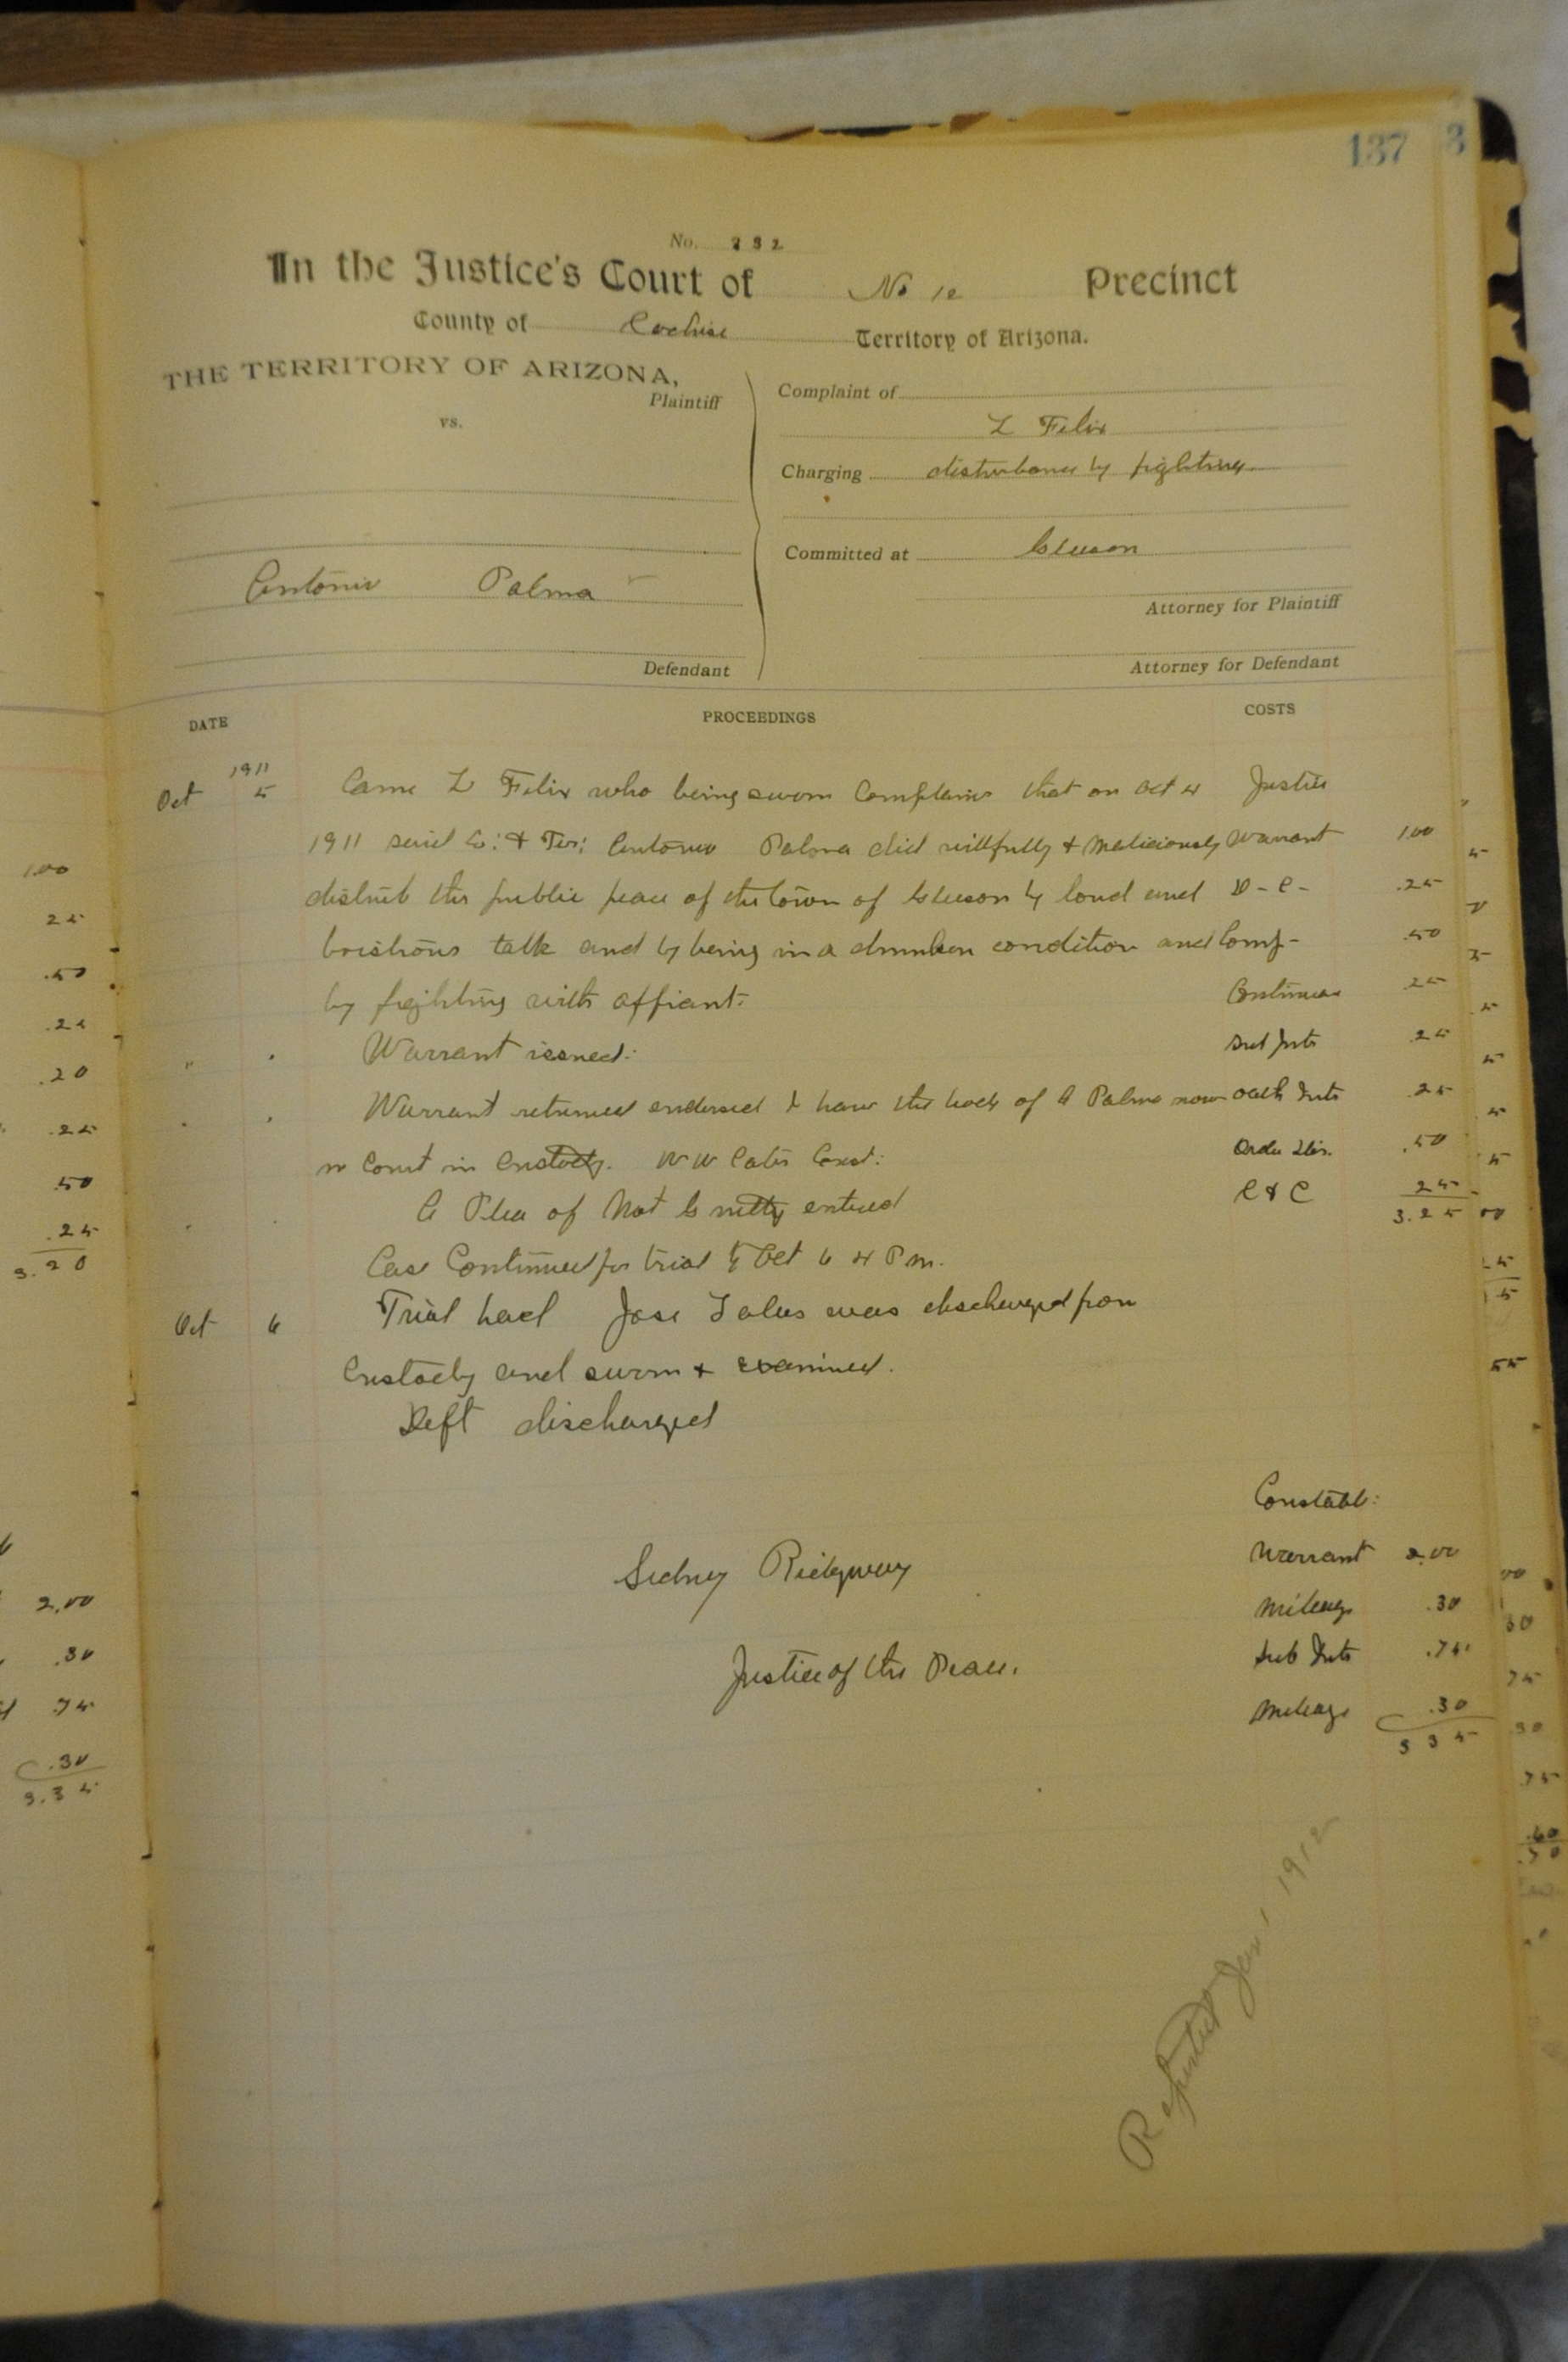 137
No. 232
In the Justice's Court of No 10 Precinct
County of Cochise Territory of Arizona.
THE TERRITORY OF ARIZONA,
Plaintiff
vs.
Antonio Palma
Defendant
Complaint of
L Felix
Charging disturbance by fighting
Committed at Gleeson
Attorney for Plaintiff
Attorney for Defendant
DATE PROCEEDINGS COSTS
1911
Oct 5 Came L Felix who being sworn Complains that on Oct 4 Justice
1911 said Co: & Ter: Antonio Palma did willfully & Maliciously Warrant 1.00
distrub the public peace of the town of Gleeson by loud and D - C - .25
boistrous talk and by being in a drunken condition and Comp - .50
by fighting with affiant. Continuance .25
" Warrant issued: Sub Ints .25
Warrant returned endorsed I have the body of A Palma now Oath Ints .25
in Court in Custody. W W Cates Const: Order Dis. .50
A Plea of Not Guilty entered C & C 25
3.25
Case Continued for trial to Oct 6 4 P m.
Oct 6 Trial had Jose was discharged from
Custody and sworn & examined.
Deft discharged
Sidney Ridgway
Justice of the Peace.
Constable:
Warrant 2.00
Mileage .30
Sub Ints .75
Mileage .30
3 3 5
Reported Jan 1 1912
1.00
25
.50
.25
.20
.25
.50
.25
3.20
2.00
.30
.75
.30
3.35